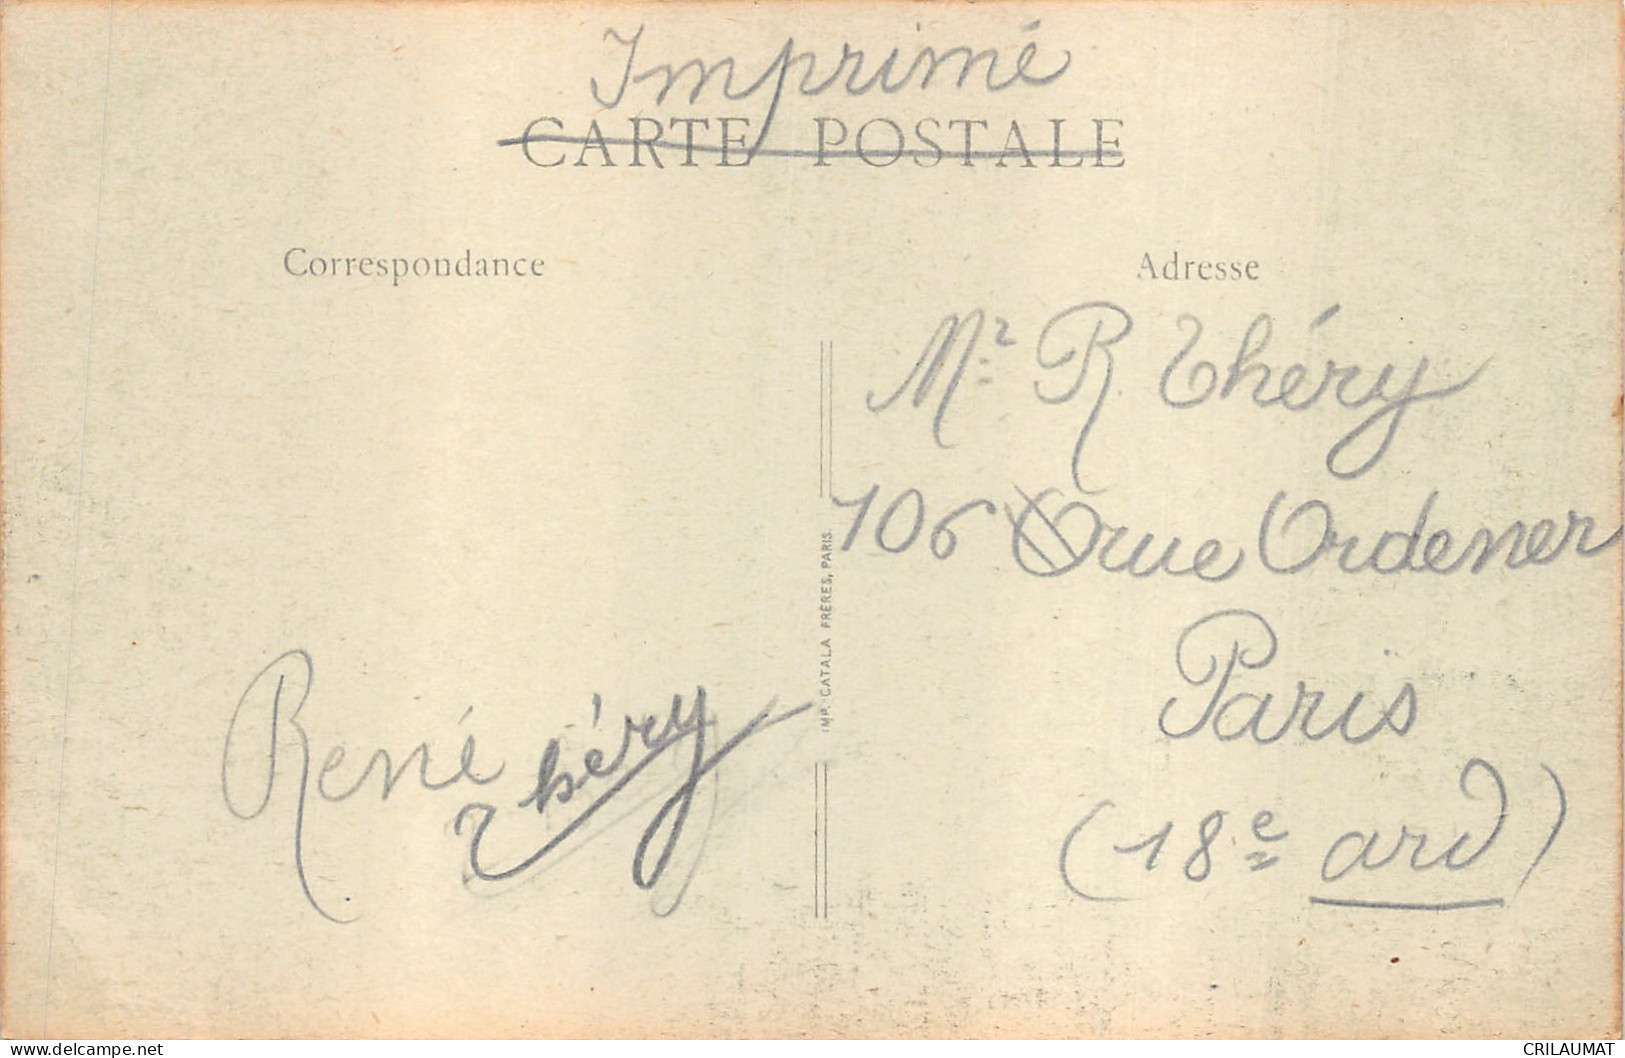 Imprimé
CARTE POSTALE
Correspondance
Adresse
Mr R. Théry
106 rue Ordener
Paris
(18e ard)
René Théry
IMP. CATALA FRÈRES, PARIS
www.delcampe.net
CRILAUMAT